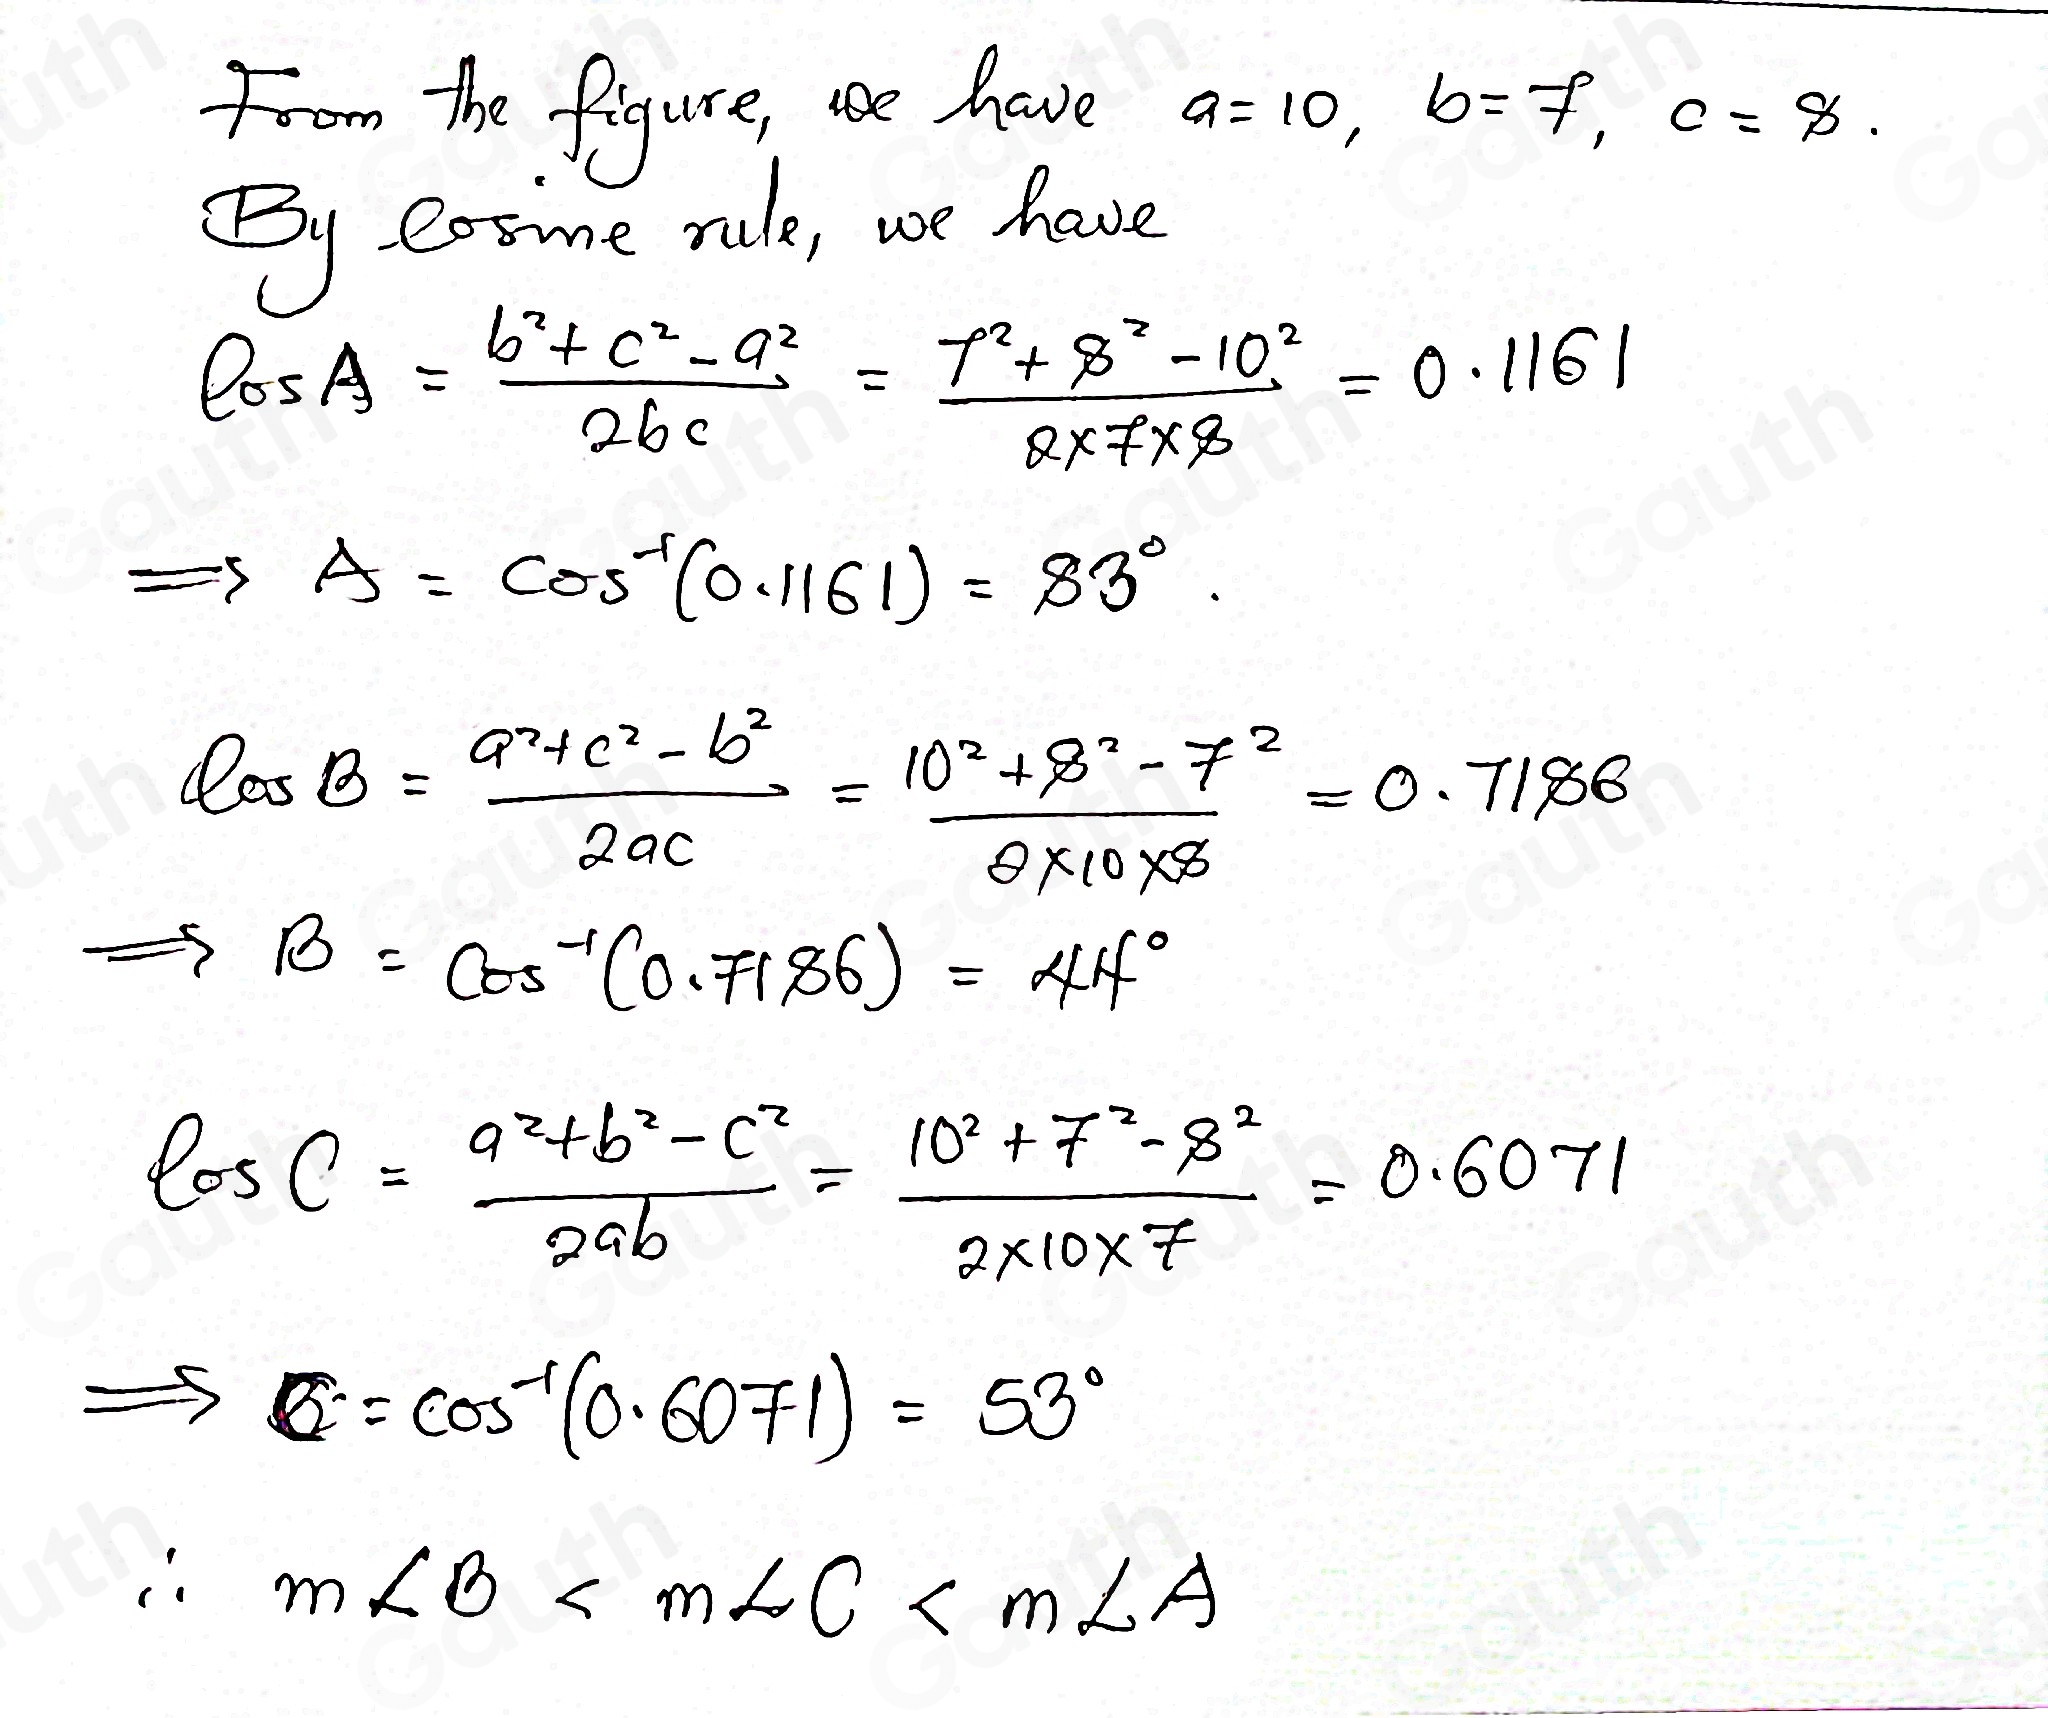 From the figure, we have a = 10, b = 7, c = 8.
By Cosine rule, we have
Cos A = (b² + c² - a²) / 2bc = (7² + 8² - 10²) / 2×7×8 = 0.1161
⇒ A = cos⁻¹(0.1161) = 83°.
Cos B = (a² + c² - b²) / 2ac = (10² + 8² - 7²) / 2×10×8 = 0.7186
⇒ B = Cos⁻¹(0.7186) = 44°
Cos C = (a² + b² - c²) / 2ab = (10² + 7² - 8²) / 2×10×7 = 0.6071
⇒ C = cos⁻¹(0.6071) = 53°
∴ m∠B < m∠C < m∠A
Gauth